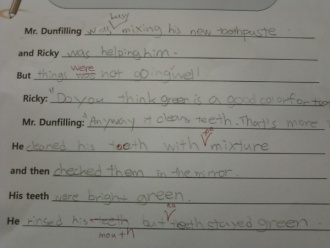 Mr. Dunfilling was busy mixing his new toothpaste
and Ricky was helping him.
But things were not going well!
Ricky: "Do you think green is a good color for
Mr. Dunfilling: "Anyway it cleans teeth. That's more
He cleaned his teeth with mixture
and then checked them in the mirror.
His teeth were bright green.
He rinsed his teeth but teeth stayed green.
mouth